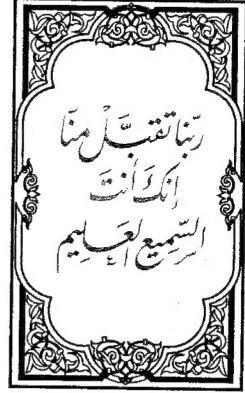 ربّنا تقبَّلْ منّا
إنكَ أنتَ
السَّمِيع العَلِيم